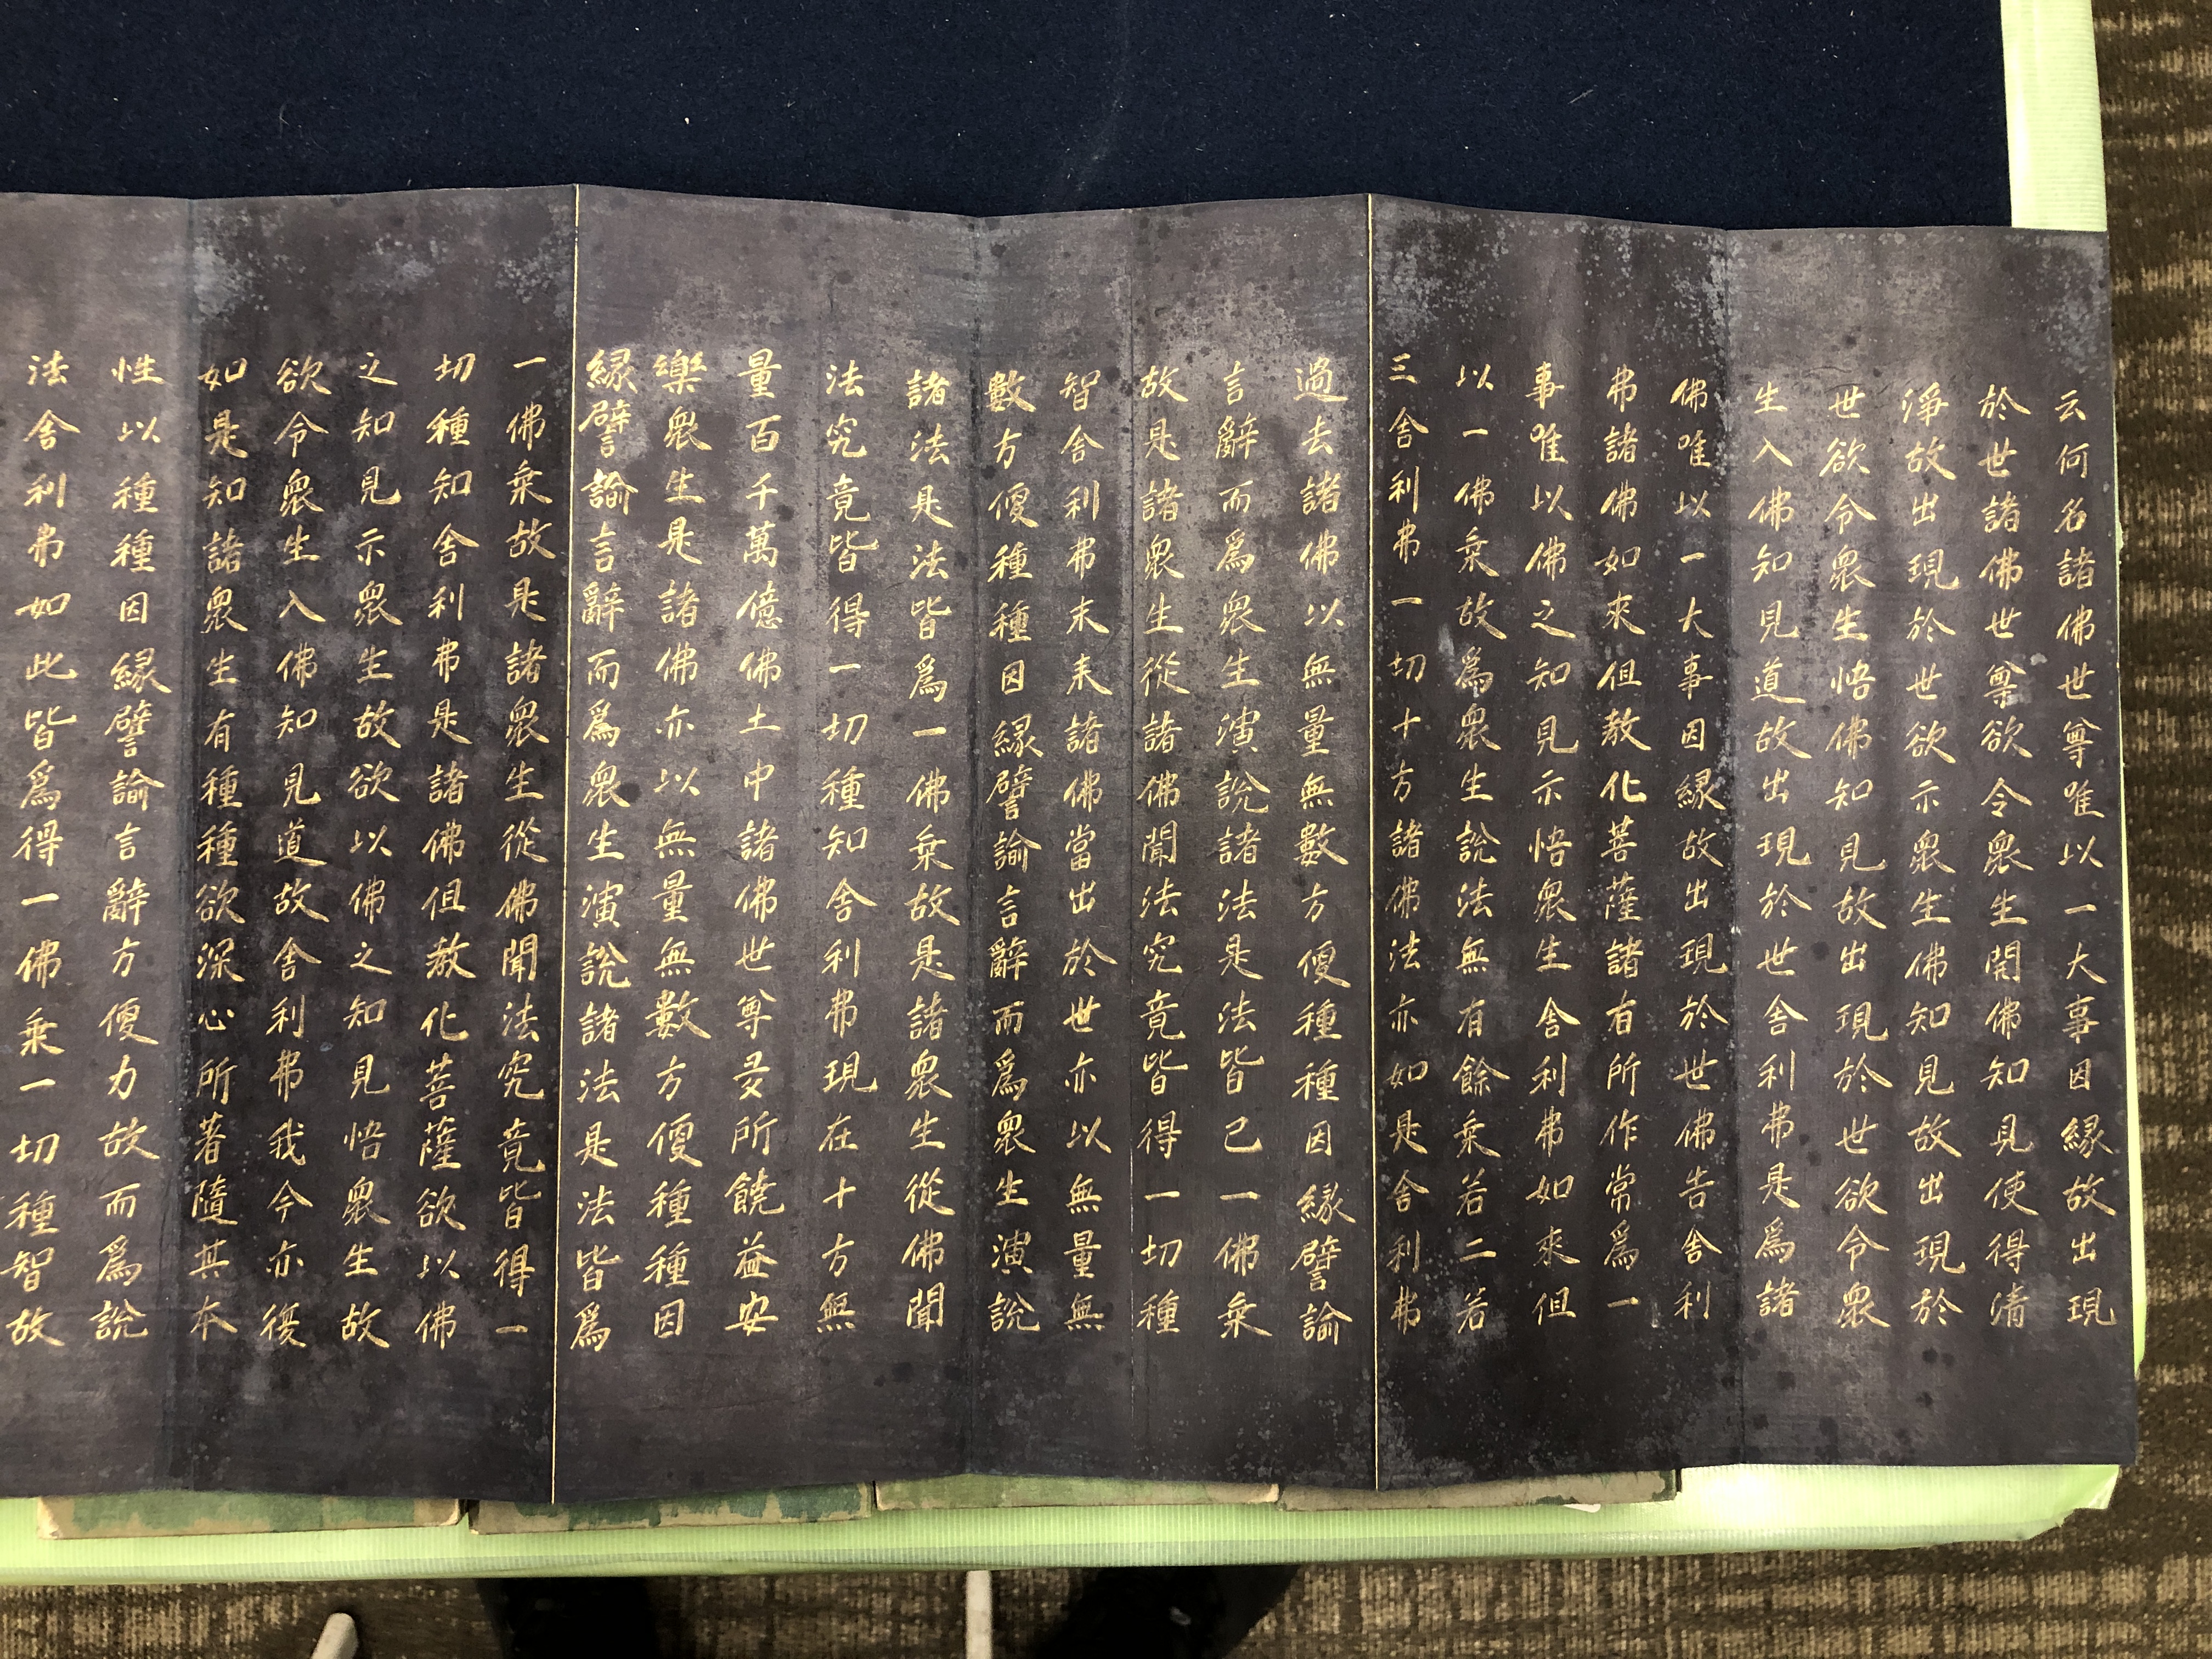 云何名諸佛世尊唯以一大事因縁故出現
於世諸佛世尊欲令衆生開佛知見使得清
淨故出現於世欲示衆生佛知見故出現於
世欲令衆生悟佛知見故出現於世欲令衆
生入佛知見道故出現於世舍利弗是爲諸
佛唯以一大事因縁故出現於世佛告舍利
弗諸佛如來但教化菩薩諸有所作常爲一
事唯以佛之知見示悟衆生舍利弗如來但
以一佛乗故爲衆生說法無有餘乗若二若
三舍利弗一切十方諸佛法亦如是舍利弗
過去諸佛以無量無數方便種種因縁譬諭
言辭而爲衆生演說諸法是法皆已一佛乗
故是諸衆生從諸佛聞法究竟皆得一切種
智舍利弗末来諸佛當出於世亦以無量無
數方便種種因縁譬諭言辭而爲衆生演說
諸法是法皆爲一佛乗故是諸衆生從佛聞
法究竟皆得一切種知舍利弗現在十方無
量百千萬億佛土中諸佛世尊多所饒益安
樂衆生是諸佛亦以無量無數方便種種因
縁譬諭言辭而爲衆生演說諸法是法皆爲
一佛乗故是諸衆生從佛聞法究竟皆得一
切種知舍利弗是諸佛但教化菩薩欲以佛
之知見示衆生故欲以佛之知見悟衆生故
欲令衆生入佛知見道故舍利弗我今亦復
如是知諸衆生有種種欲深心所著隨其本
性以種種因縁譬諭言辭方便力故而爲說
法舍利弗如此皆爲得一佛乗一切種智故